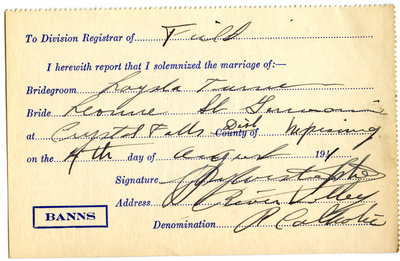 To Division Registrar of Field
I herewith report that I solemnized the marriage of:—
Bridegroom
Bride Leonne St Germain
at Crystal Falls Dist County of Nipissing
on the 4th day of August 191
Signature
Address River Valley
BANNS
Denomination R Catholic